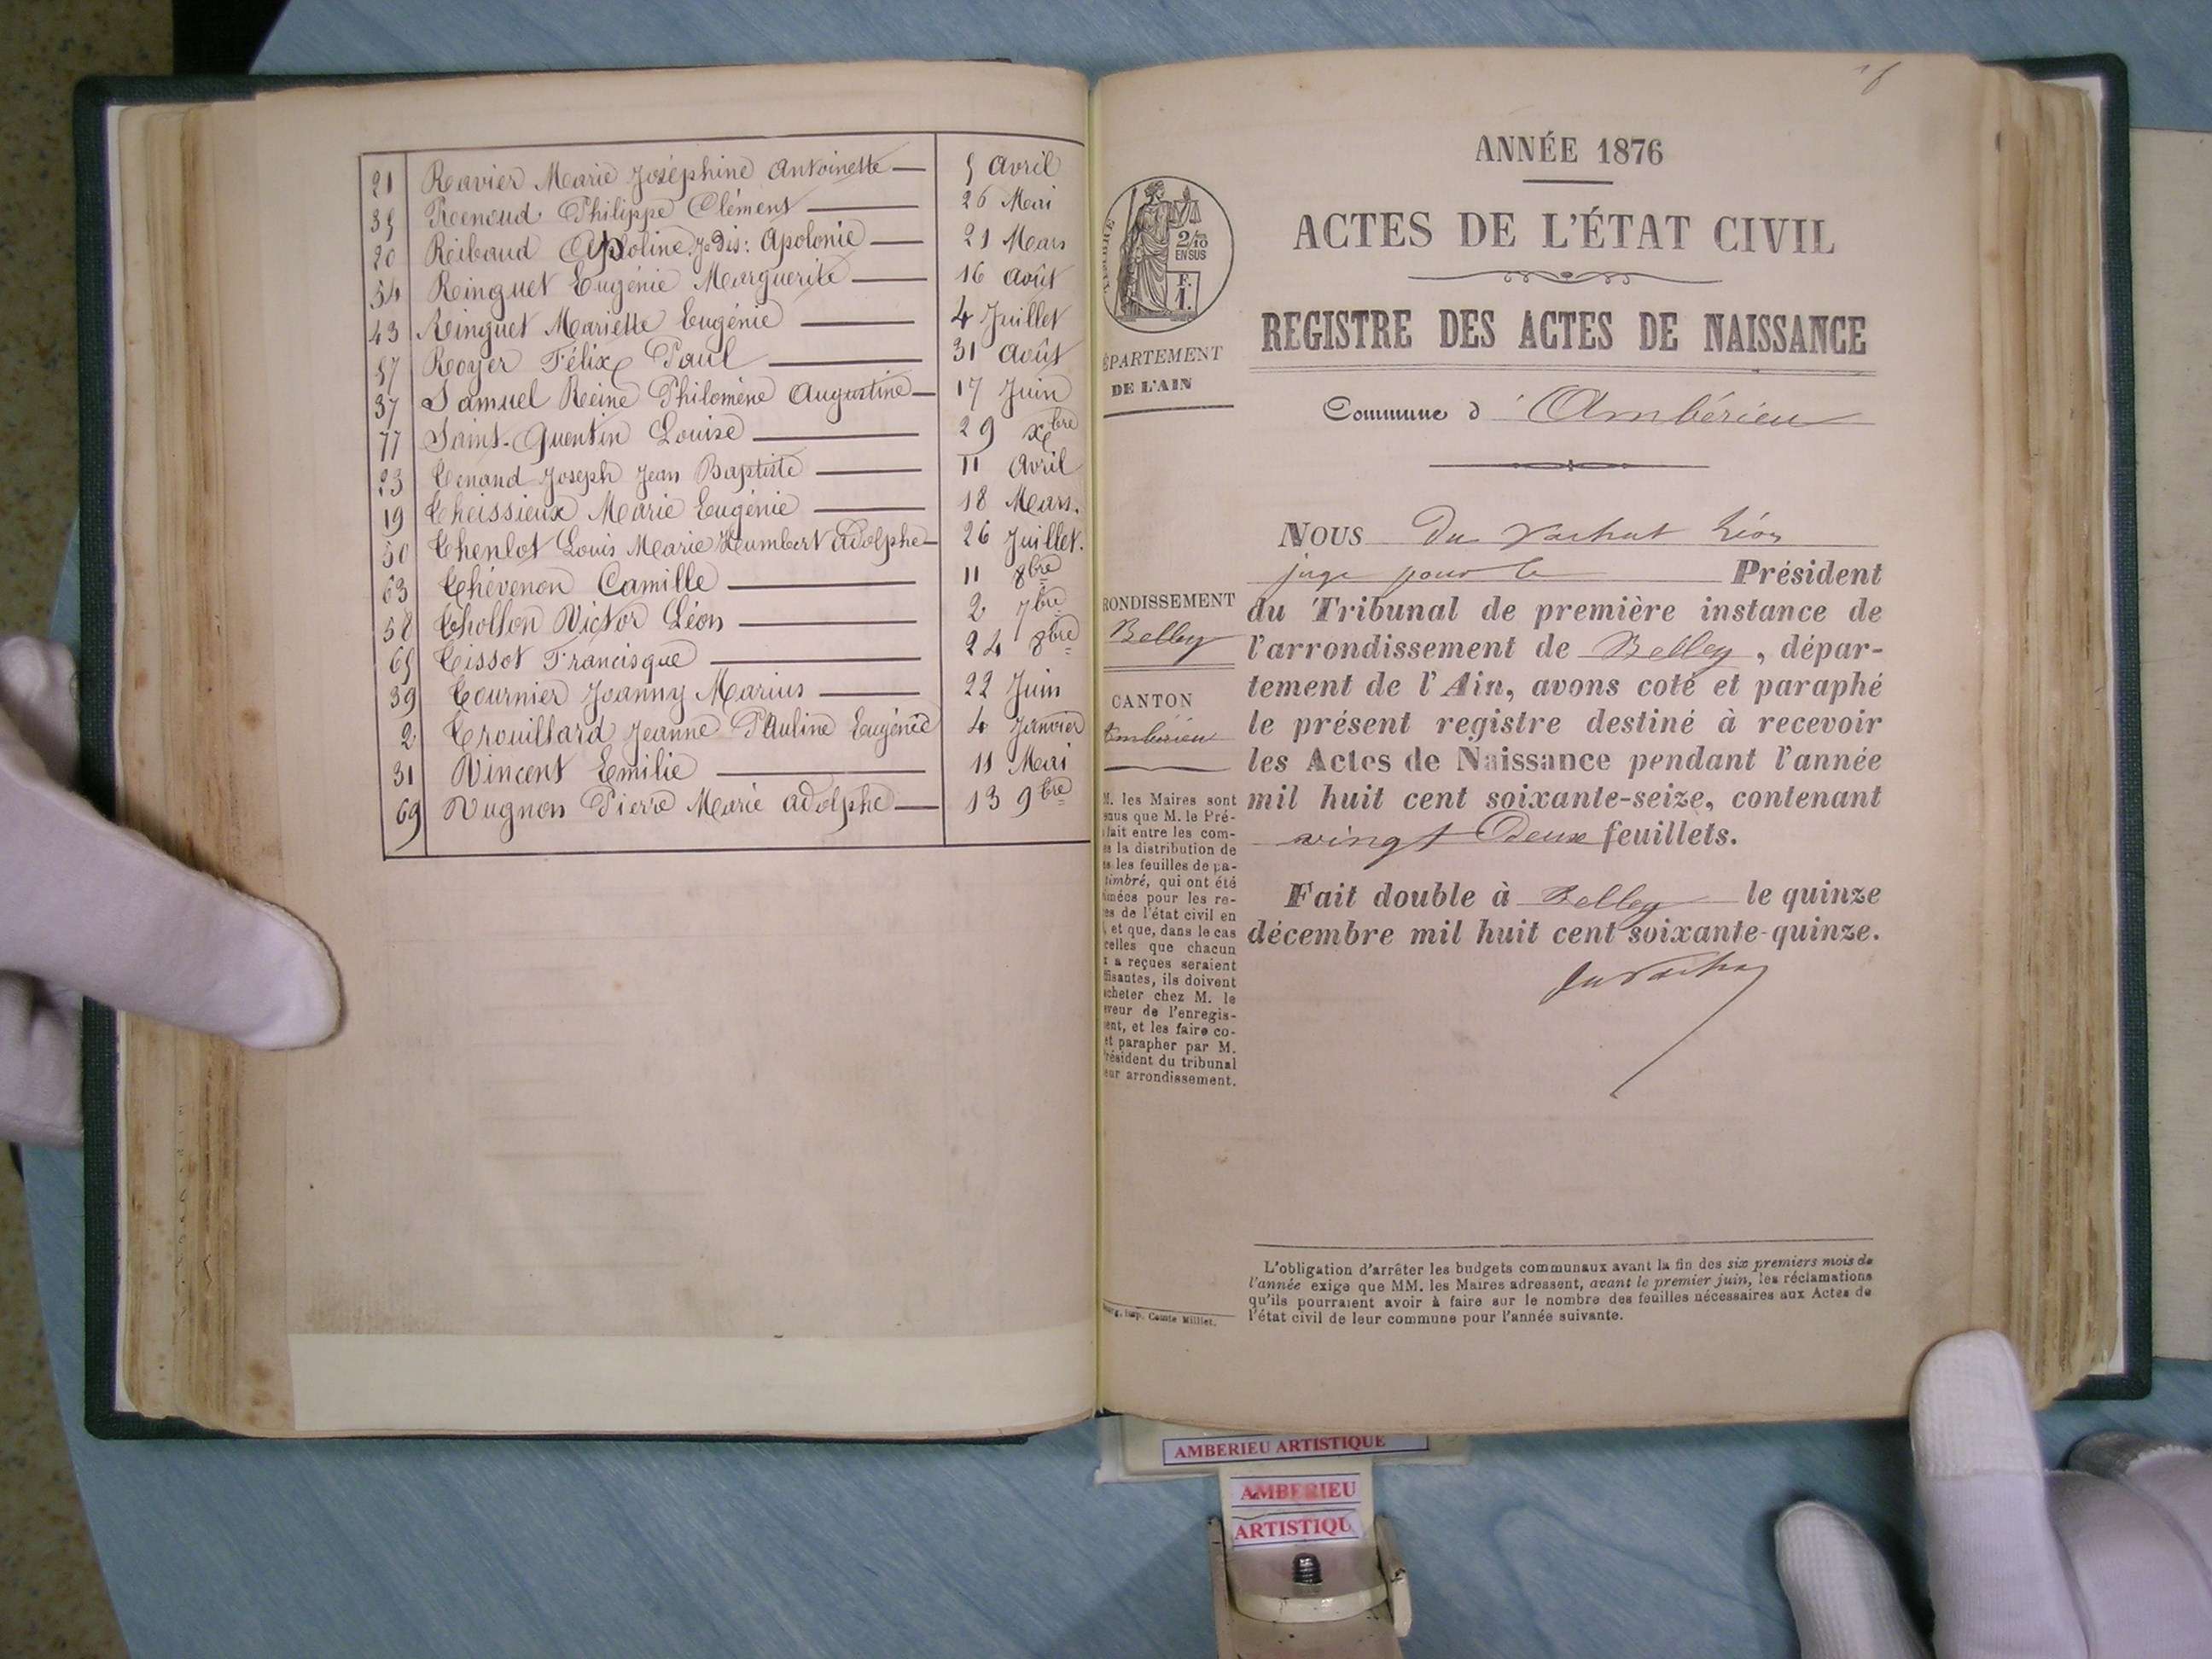 21 Ravier Marie Joséphine Antoinette — 5 Avril
35 Renoud Philippe Clément — 26 Mai
20 Ribaud Apoline, Je dis: Apolonie — 21 Mars
54 Ringuet Eugénie Marguerite — 16 Août
43 Ringuet Mariette Eugénie — 4 Juillet
57 Royer Félix Paul — 31 Août
37 Samuel Reine Philomène Augustine — 17 Juin
77 Saint-Quentin Louise — 29 Xbre
23 Tenand Joseph Jean Baptiste — 11 Avril
19 Theissieux Marie Eugénie — 18 Mars.
50 Louis Marie Humbert Adolphe — 26 Juillet.
63 Thévenon Camille — 11 8bre
58 Thollon Victor Léon — 2 7bre
65 Tissot Francisque — 24 8bre
39 Tournier Joanny Marius — 22 Juin
2 Trouillard Jeanne Pauline Eugénie 4 Janvier
31 Vincent Emilie — 11 Mai
69 Vugnon Pierre Marie Adolphe — 13 9bre
ANNÉE 1876
ACTES DE L'ÉTAT CIVIL
REGISTRE DES ACTES DE NAISSANCE
Commune d'Ambérieu
2/10
EN SUS
F.
1.
ÉPARTEMENT
DE L'AIN
RONDISSEMENT
Belley
CANTON
Ambérieu
M. les Maires sont
enus que M. le Pré-
fait entre les com-
es la distribution de
es les feuilles de pa-
timbré, qui ont été
inées pour les re-
es de l'état civil en
, et que, dans le cas
celles que chacun
x a reçues seraient
ffisantes, ils doivent
cheter chez M. le
eveur de l'enregis-
ent, et les faire co-
et parapher par M.
résident du tribunal
eur arrondissement.
Imp. Comte Milliet.
NOUS Du Vachat Léon
juge pour le Président
du Tribunal de première instance de
l'arrondissement de Belley, dépar-
tement de l'Ain, avons coté et paraphé
le présent registre destiné à recevoir
les Actes de Naissance pendant l'année
mil huit cent soixante-seize, contenant
vingt Deux feuillets.
Fait double à Belley le quinze
décembre mil huit cent soixante-quinze.
Du Vachat
L'obligation d'arrêter les budgets communaux avant la fin des six premiers mois de
l'année exige que MM. les Maires adressent, avant le premier juin, les réclamations
qu'ils pourraient avoir à faire sur le nombre des feuilles nécessaires aux Actes de
l'état civil de leur commune pour l'année suivante.
AMBERIEU ARTISTIQUE
AMBERIEU
ARTISTIQU